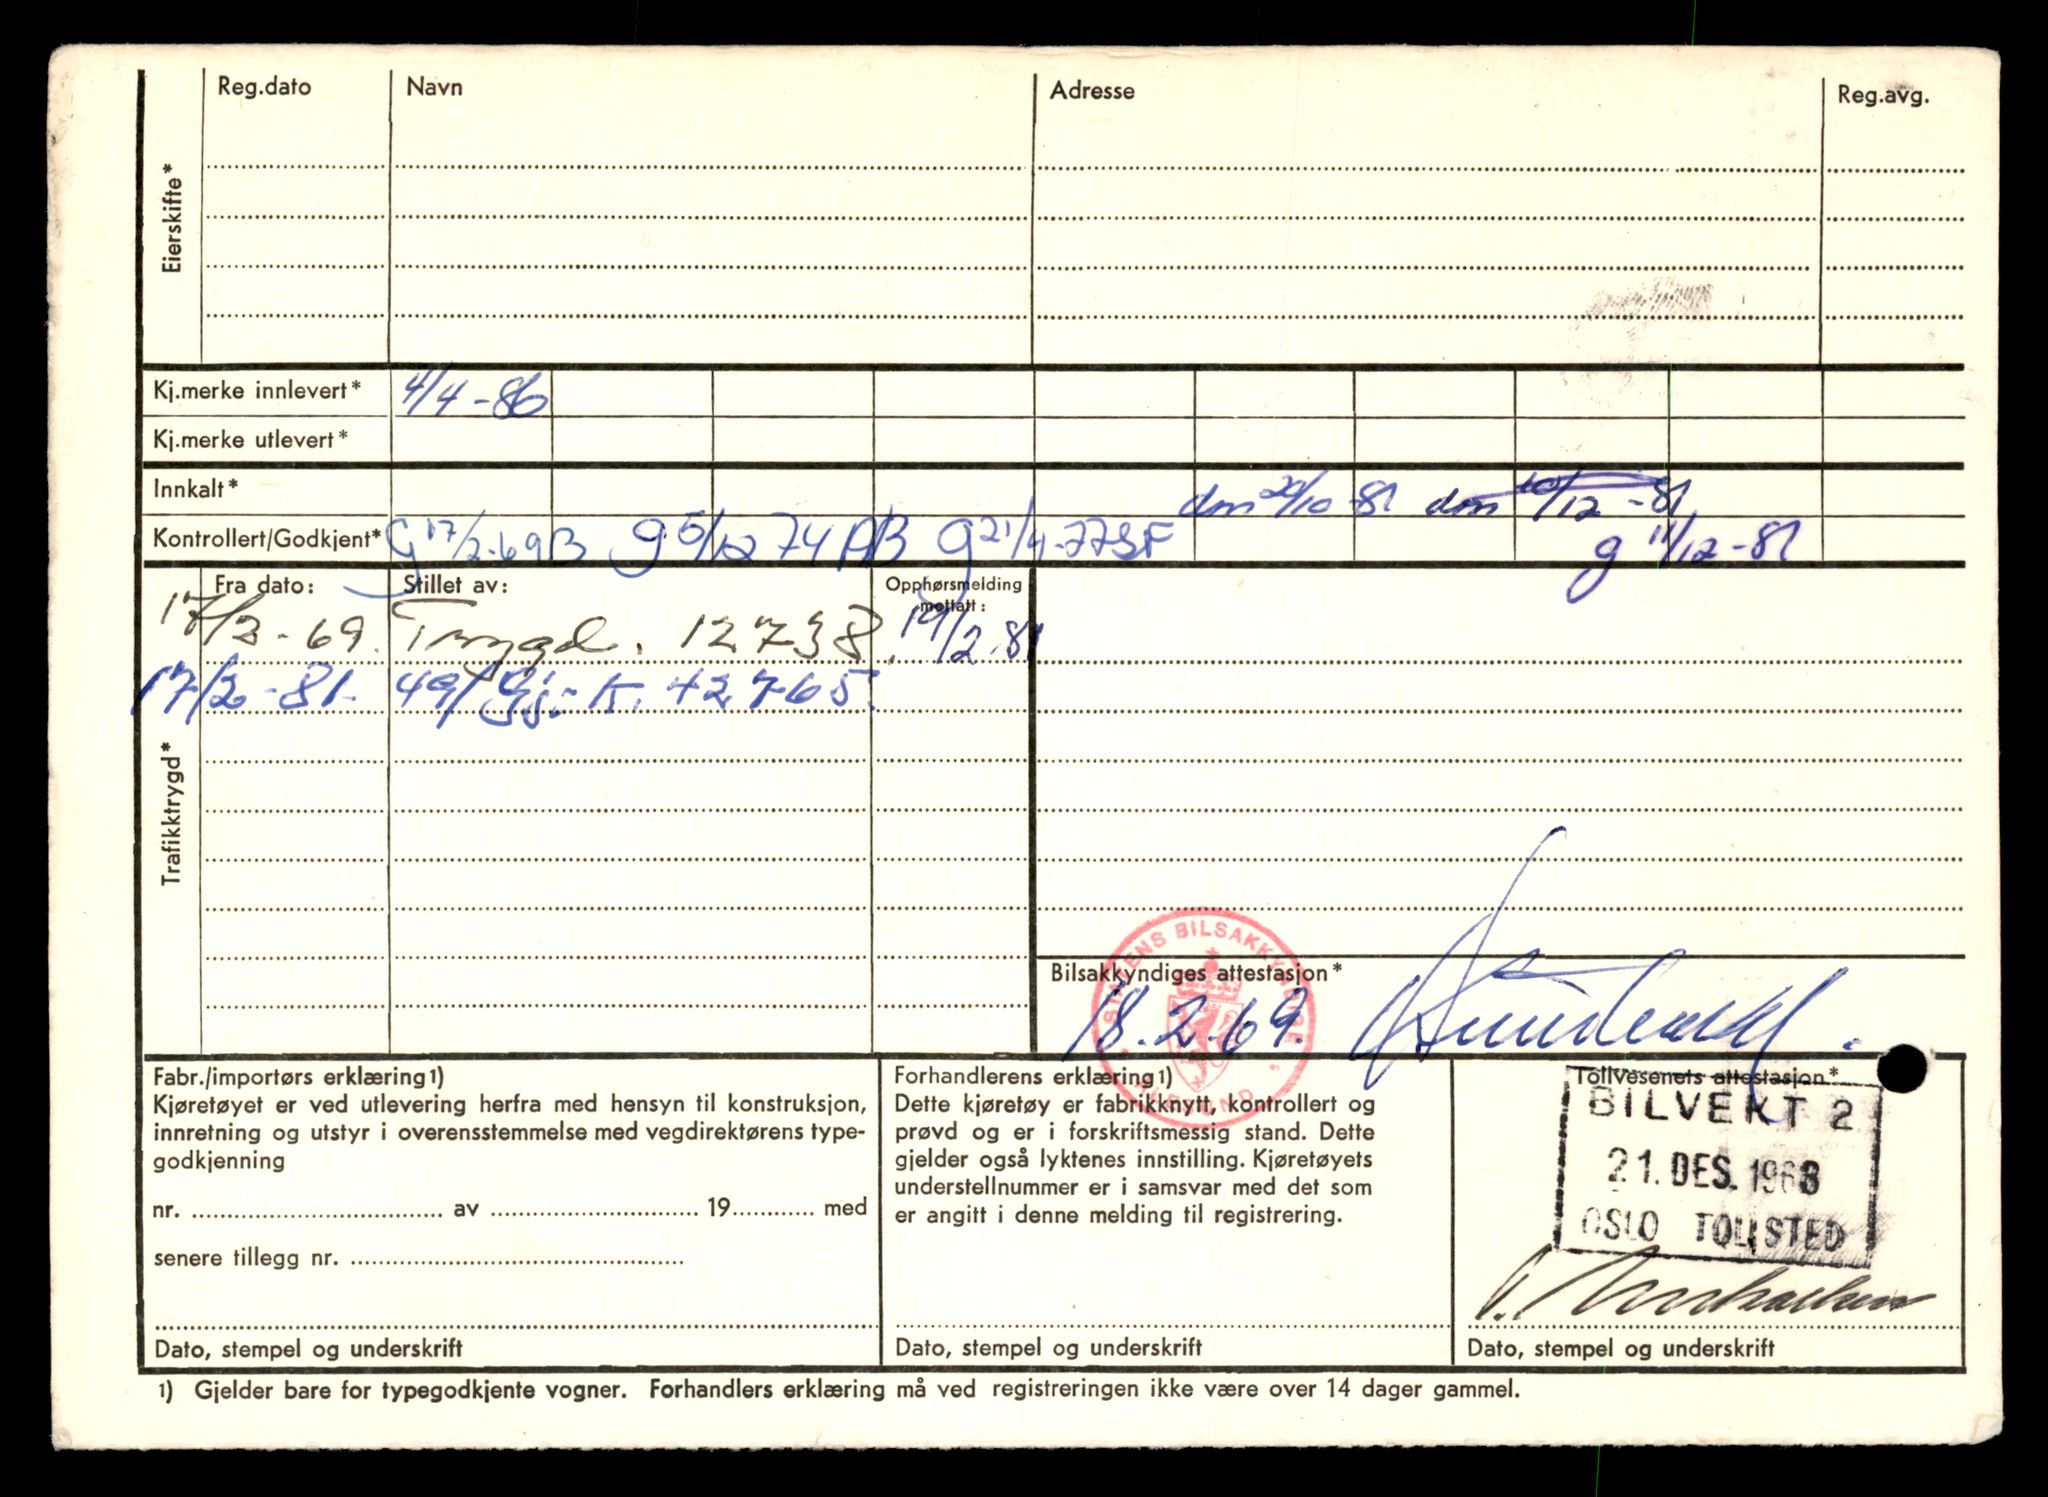 Eierskifte*
Reg.dato Navn Adresse Reg.avg.
Kj.merke innlevert* 4/4-86
Kj.merke utlevert*
Innkalt* dm 20/10-81 dm 10/12-81
Kontrollert/Godkjent* G 17/2-69 B g 5/12 74 AB g 21/4-77 SF g 11/12-81
Trafikktrygd*
Fra dato: Stillet av: Opphørsmelding mottatt:
17/2-69. Trygd. 12738. 19/2.81
17/2-81. 49/ Gj.- K. 42765.
STATENS BILSAKKYNDIGE
ÅLESUND
Bilsakkyndiges attestasjon*
18.2.69.
Fabr./importørs erklæring1)
Kjøretøyet er ved utlevering herfra med hensyn til konstruksjon,
innretning og utstyr i overensstemmelse med vegdirektørens type-
godkjenning
nr. av 19 med
senere tillegg nr.
Dato, stempel og underskrift
Forhandlerens erklæring1)
Dette kjøretøy er fabrikknytt, kontrollert og
prøvd og er i forskriftsmessig stand. Dette
gjelder også lyktenes innstilling. Kjøretøyets
understellnummer er i samsvar med det som
er angitt i denne melding til registrering.
Dato, stempel og underskrift
Tollvesenets attestasjon*
BILVEKT 2
21. DES. 1968
OSLO TOLLSTED
Dato, stempel og underskrift
1) Gjelder bare for typegodkjente vogner. Forhandlers erklæring må ved registreringen ikke være over 14 dager gammel.